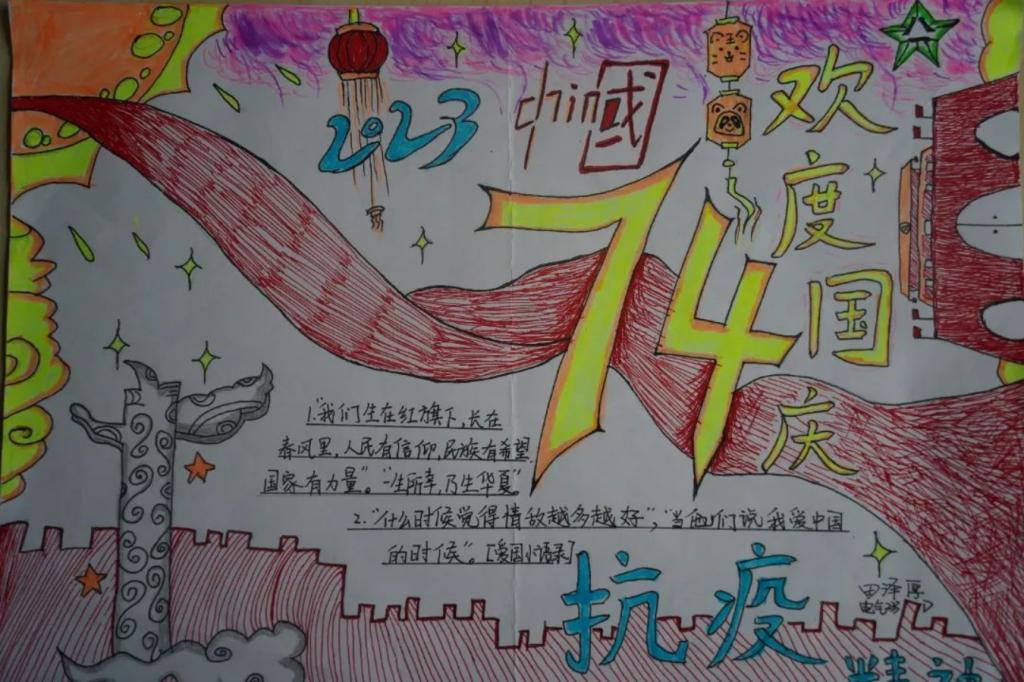 2023
chin國
欢度国庆
74
1.“我们生在红旗下,长在
春风里,人民有信仰,民族有希望,
国家有力量”。“一生所幸,乃生华夏”
2.“什么时候觉得情敌越多越好”,“当他们说我爱中国
的时候”。[爱国小语录]
抗疫
精神
田泽厚